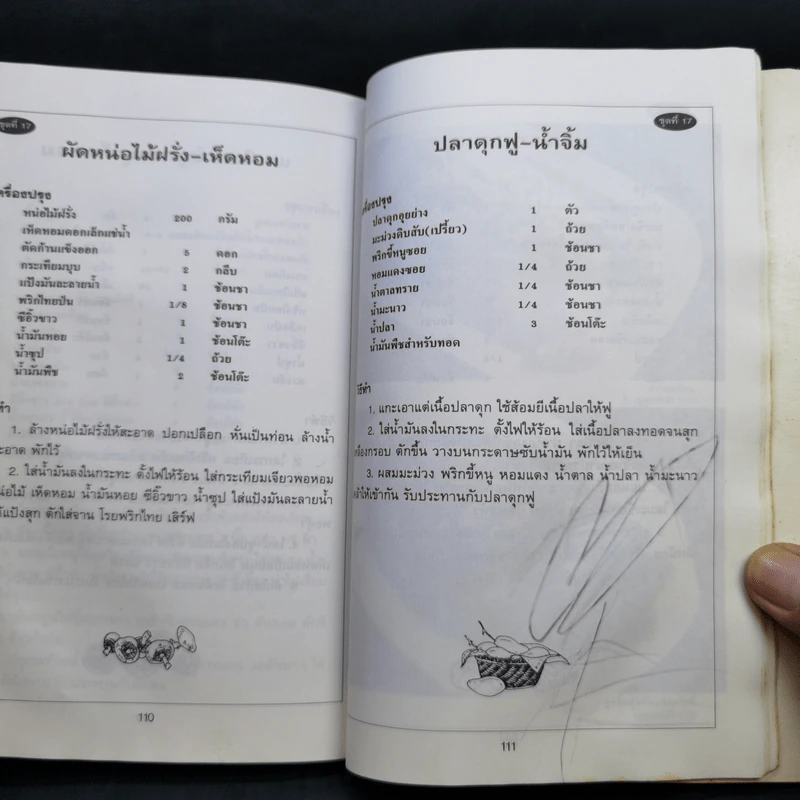 ชุดที่ 17
ผัดหน่อไม้ฝรั่ง-เห็ดหอม
ครื่องปรุง
หน่อไม้ฝรั่ง 200 กรัม
เห็ดหอมดอกเล็กแช่น้ำ
ตัดก้านแข็งออก 5 ดอก
กระเทียมบุบ 2 กลีบ
แป้งมันละลายน้ำ 1 ช้อนชา
พริกไทยป่น 1/8 ช้อนชา
ซีอิ๊วขาว 1 ช้อนชา
น้ำมันหอย 1 ช้อนโต๊ะ
น้ำซุป 1/4 ถ้วย
น้ำมันพืช 2 ช้อนโต๊ะ
ทำ
1. ล้างหน่อไม้ฝรั่งให้สะอาด ปอกเปลือก หั่นเป็นท่อน ล้างน้ำ
ะอาด พักไว้
2. ใส่น้ำมันลงในกระทะ ตั้งไฟให้ร้อน ใส่กระเทียมเจียวพอหอม
น่อไม้ เห็ดหอม น้ำมันหอย ซีอิ๊วขาว น้ำซุป ใส่แป้งมันละลายน้ำ
้แป้งสุก ตักใส่จาน โรยพริกไทย เสิร์ฟ
110
ชุดที่ 17
ปลาดุกฟู-น้ำจิ้ม
ครื่องปรุง
ปลาดุกอุยย่าง 1 ตัว
มะม่วงดิบสับ(เปรี้ยว) 1 ถ้วย
พริกขี้หนูซอย 1 ช้อนชา
หอมแดงซอย 1/4 ถ้วย
น้ำตาลทราย 1/4 ช้อนชา
น้ำมะนาว 1/4 ช้อนชา
น้ำปลา 3 ช้อนโต๊ะ
น้ำมันพืชสำหรับทอด
วิธีทำ
1. แกะเอาแต่เนื้อปลาดุก ใช้ส้อมยีเนื้อปลาให้ฟู
2. ใส่น้ำมันลงในกระทะ ตั้งไฟให้ร้อน ใส่เนื้อปลาลงทอดจนสุก
เหลืองกรอบ ตักขึ้น วางบนกระดาษซับน้ำมัน พักไว้ให้เย็น
3. ผสมมะม่วง พริกขี้หนู หอมแดง น้ำตาล น้ำปลา น้ำมะนาว
ล้าให้เข้ากัน รับประทานกับปลาดุกฟู
111